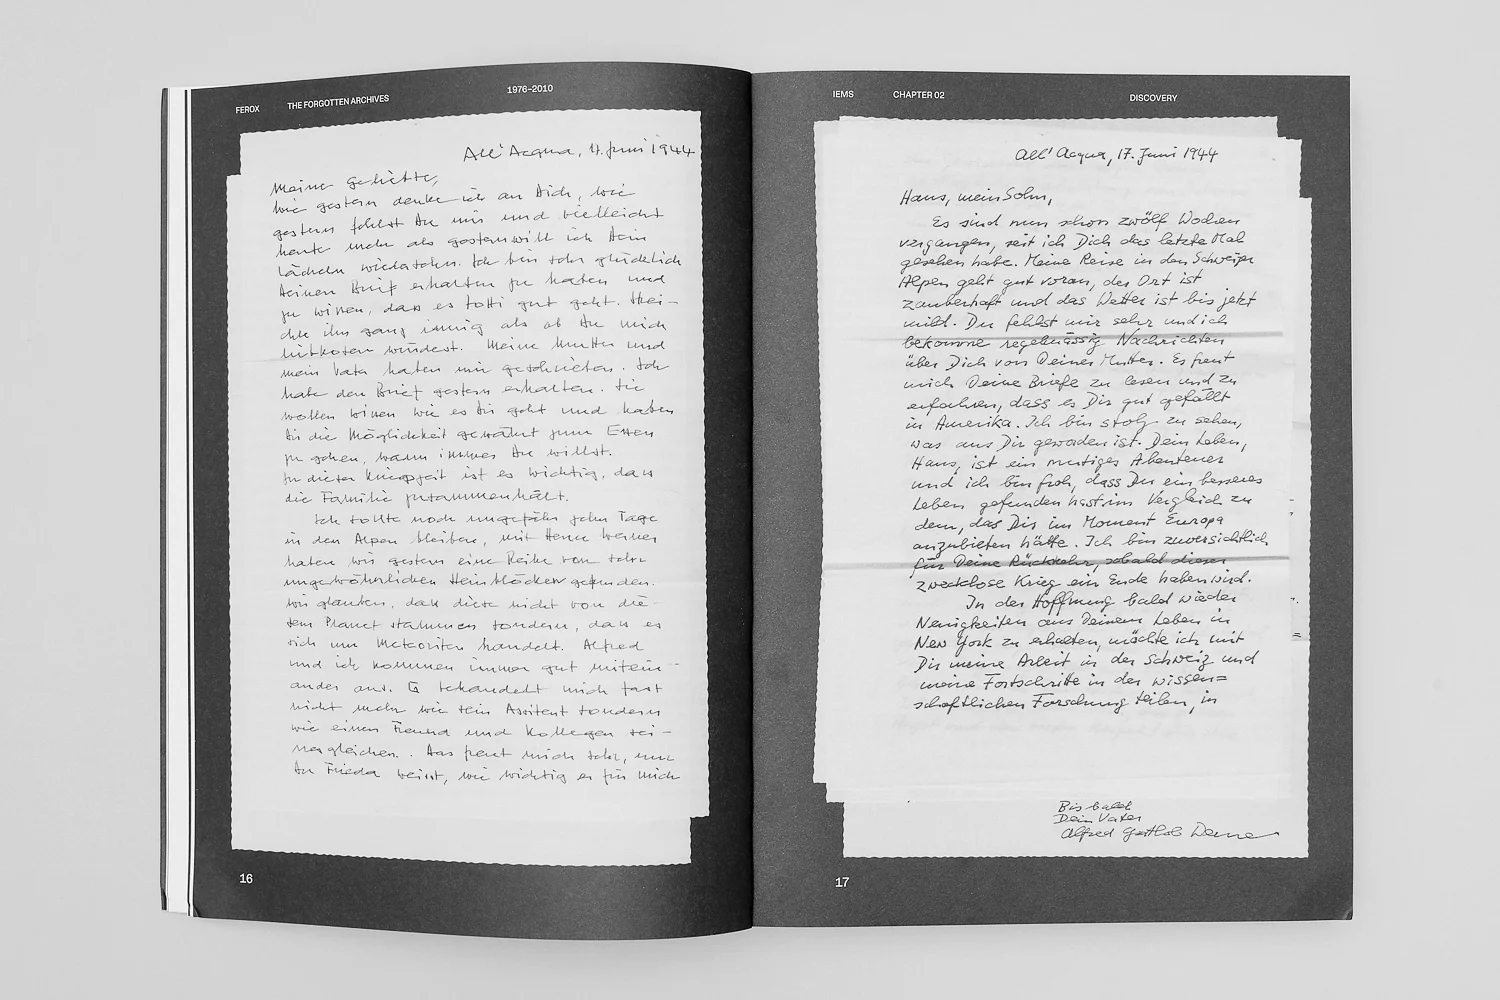 FEROX THE FORGOTTEN ARCHIVES 1976–2010
All' Acqua, 11. Juni 1944
Meine Geliebte,
wie gestern denke ich an Dich, wie
gestern fehlst Du mir und vielleicht
heute mehr als gestern will ich Dein
Lächeln wiedersehen. Ich bin sehr glücklich
Deinen Brief erhalten zu haben und
zu wissen, dass es Dotti gut geht.
ihn ganz innig als ob Du mich
liebkosen würdest. Meine Mutter und
mein Vater haben mir geschrieben. Ich
habe den Brief gestern erhalten. Sie
wollen wissen wie es Dir geht und haben
Dir die Möglichkeit gewährt zum Essen
zu gehen, wann immer Du willst.
In dieser Kriegszeit ist es wichtig, dass
die Familie zusammenhält.
Ich sollte noch ungefähr zehn Tage
in den Alpen bleiben, mit Herrn Werner
haben wir gestern eine Reihe von sehr
ungewöhnlichen Steinblöcken gefunden.
Wir glauben, dass diese nicht von die-
sem Planet stammen sondern, dass es
sich um Meteoriten handelt. Alfred
und ich kommen immer gut mitein-
ander aus. Er behandelt mich fast
nicht mehr wie sein Assitent sondern
wie einen Freund und Kollegen sei-
nesgleichen. Das freut mich sehr, und
Du Frieda weisst, wie wichtig es für mich
16
IEMS CHAPTER 02 DISCOVERY
All' Acqua, 17. Juni 1944
Hans, mein Sohn,
Es sind nun schon zwölf Wochen
vergangen, seit ich Dich das letzte Mal
gesehen habe. Meine Reise in den Schweizer
Alpen geht gut voran, der Ort ist
zauberhaft und das Wetter ist bis jetzt
mild. Du fehlst mir sehr und ich
bekomme regelmässig Nachrichten
über Dich von Deiner Mutter. Es freut
mich Deine Briefe zu lesen und zu
erfahren, dass es Dir gut gefällt
in Amerika. Ich bin stolz zu sehen,
was aus Dir geworden ist. Dein Leben,
Hans, ist ein mutiges Abenteuer
und ich bin froh, dass Du ein besseres
Leben gefunden hast im Vergleich zu
dem, das Dir im Moment Europa
anzubieten hätte. Ich bin zuversichtlich
für Deine Rückkehr, sobald dieser
zwecklose Krieg ein Ende haben wird.
In der Hoffnung bald wieder
Neuigkeiten aus Deinem Leben in
New York zu erhalten, möchte ich mit
Dir meine Arbeit in der Schweiz und
meine Fortschritte in der wissen=
schaftlichen Forschung teilen, in
Bis bald
Dein Vater
Alfred Gottlob Werner
17